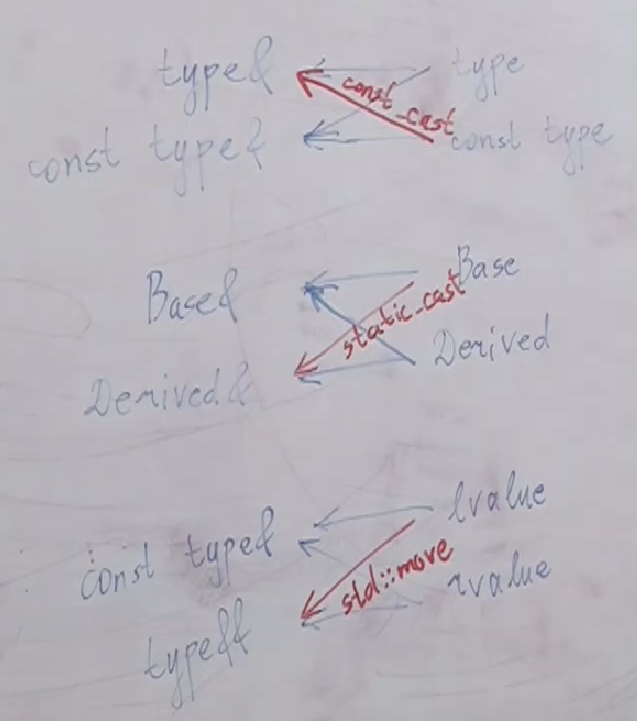 type& type
const_cast
const type& const type
Base& Base
static_cast
Derived& Derived
const type& lvalue
std::move
type&& rvalue